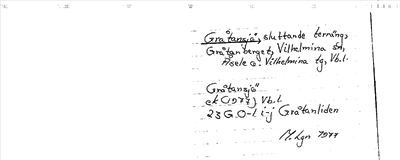 Gråtansjö, sluttande terräng,
Gråtanberget, Vilhelmina sn,
Åsele o. Vilhelmina tg, Vb.l.
Gråtansjö
ek (1977) Vb.l
23 G.0-1 i-j Gråtanliden
M. Lgn 1977